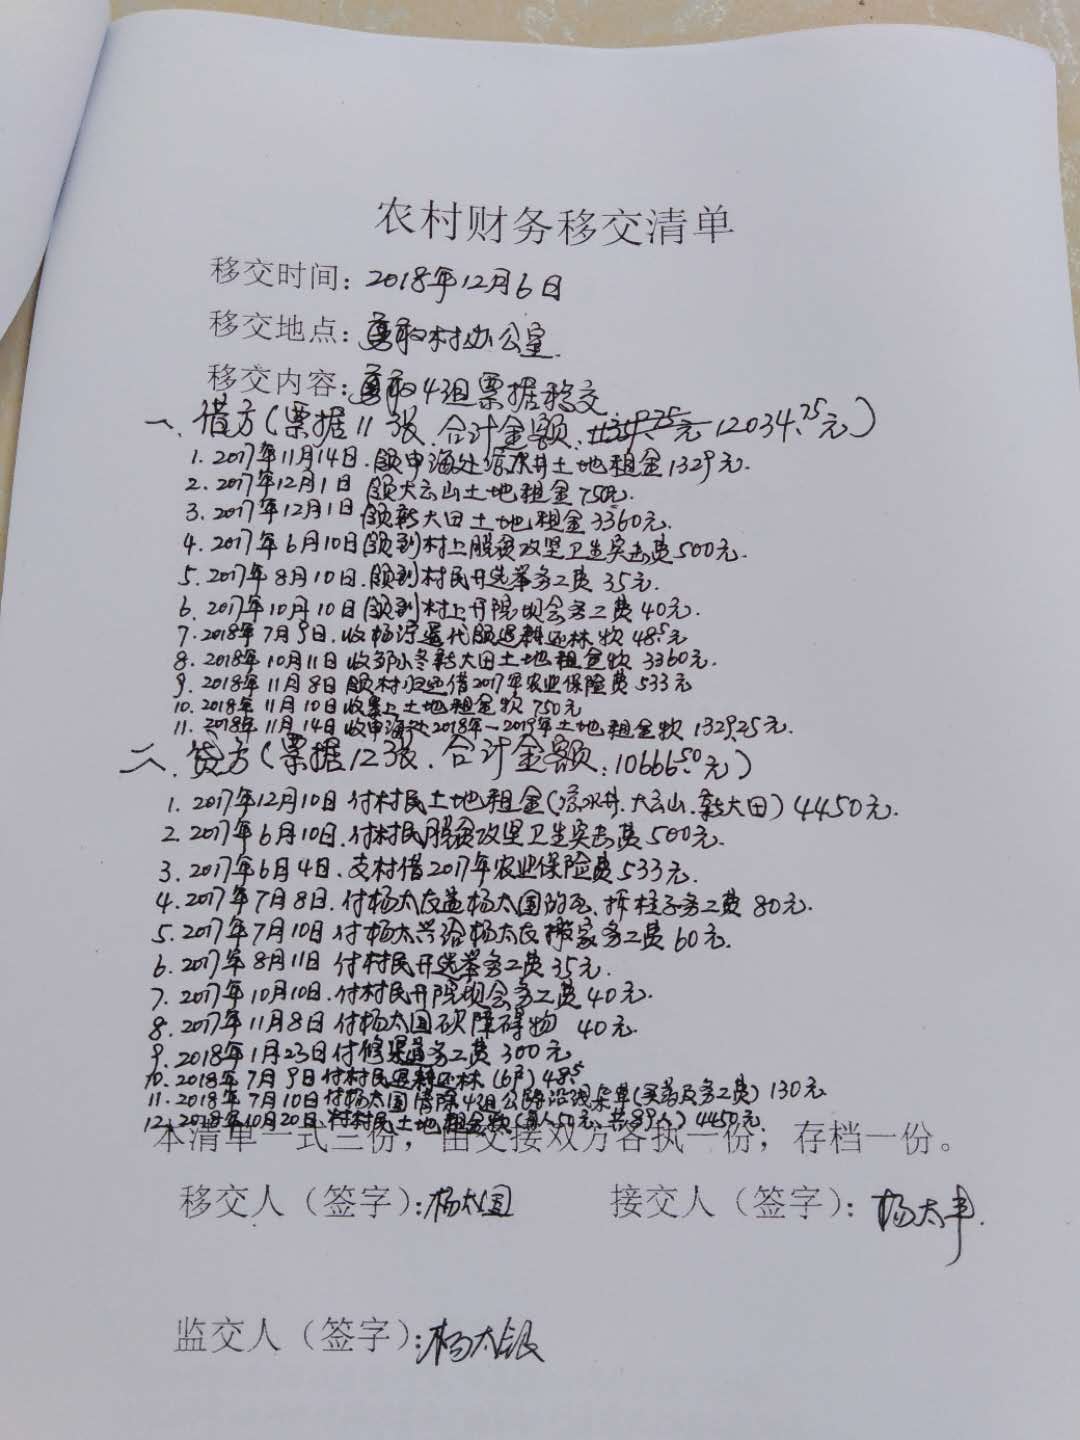 农村财务移交清单
移交时间：2018年12月6日
移交地点：勇敢村办公室.
移交内容：勇敢4组票据移交
一、借方(票据11张.合计金额: 12034.75元)
1. 2017年11月14日.领申海处凉水井土地租金1329元.
2. 2017年12月1日 领大云山土地租金750元.
3. 2017年12月1日 领新大田土地租金3360元.
4. 2017年6月10日领到村上脱贫攻坚卫生突击费500元.
5. 2017年8月10日.领到村民开选举务工费 35元.
6. 2017年10月10日领到村上开院坝会务工费40元.
7. 2018年7月9日.收杨 代领退耕还林款 48.5元
8. 2018年10月11日收邹小冬新大田土地租金款 3360元.
9. 2018年11月8日领村归还借2017年农业保险费533元
10. 2018年11月10日收 土地租金款 750元
11. 2018年11月14日收申海处2018年-2019年土地租金款 1329.25元.
二、贷方(票据12张.合计金额:10666.50元)
1. 2017年12月10日付村民土地租金(凉水井.大云山.新大田) 4450元.
2. 2017年6月10日.付村民脱贫攻坚卫生突击费500元.
3. 2017年6月4日.支村借2017年农业保险费533元.
4. 2017年7月8日.付杨太友盖杨太国的瓦、拆柱子务工费 80元.
5. 2017年7月10日付杨太兴给杨太友搬家务工费60元.
6. 2017年8月11日付村民开选举务工费35元.
7. 2017年10月10日.付村民开院坝会务工费40元.
8. 2017年11月8日付杨太国砍障碍物 40元.
9. 2018年1月23日付修渠道务工费300元
10. 2018年7月9日付村民退耕还林(6户)48.5
11. 2018年7月10日付杨太国清除4组公路沿线杂草(买药及务工费) 130元
12. 2018年10月20日.付村民土地租金款(每人50元、共89人)4450元.
本清单一式三份，由交接双方各执一份，存档一份。
移交人（签字）:杨太国 接交人（签字）：杨太丰.
监交人（签字）:杨太银